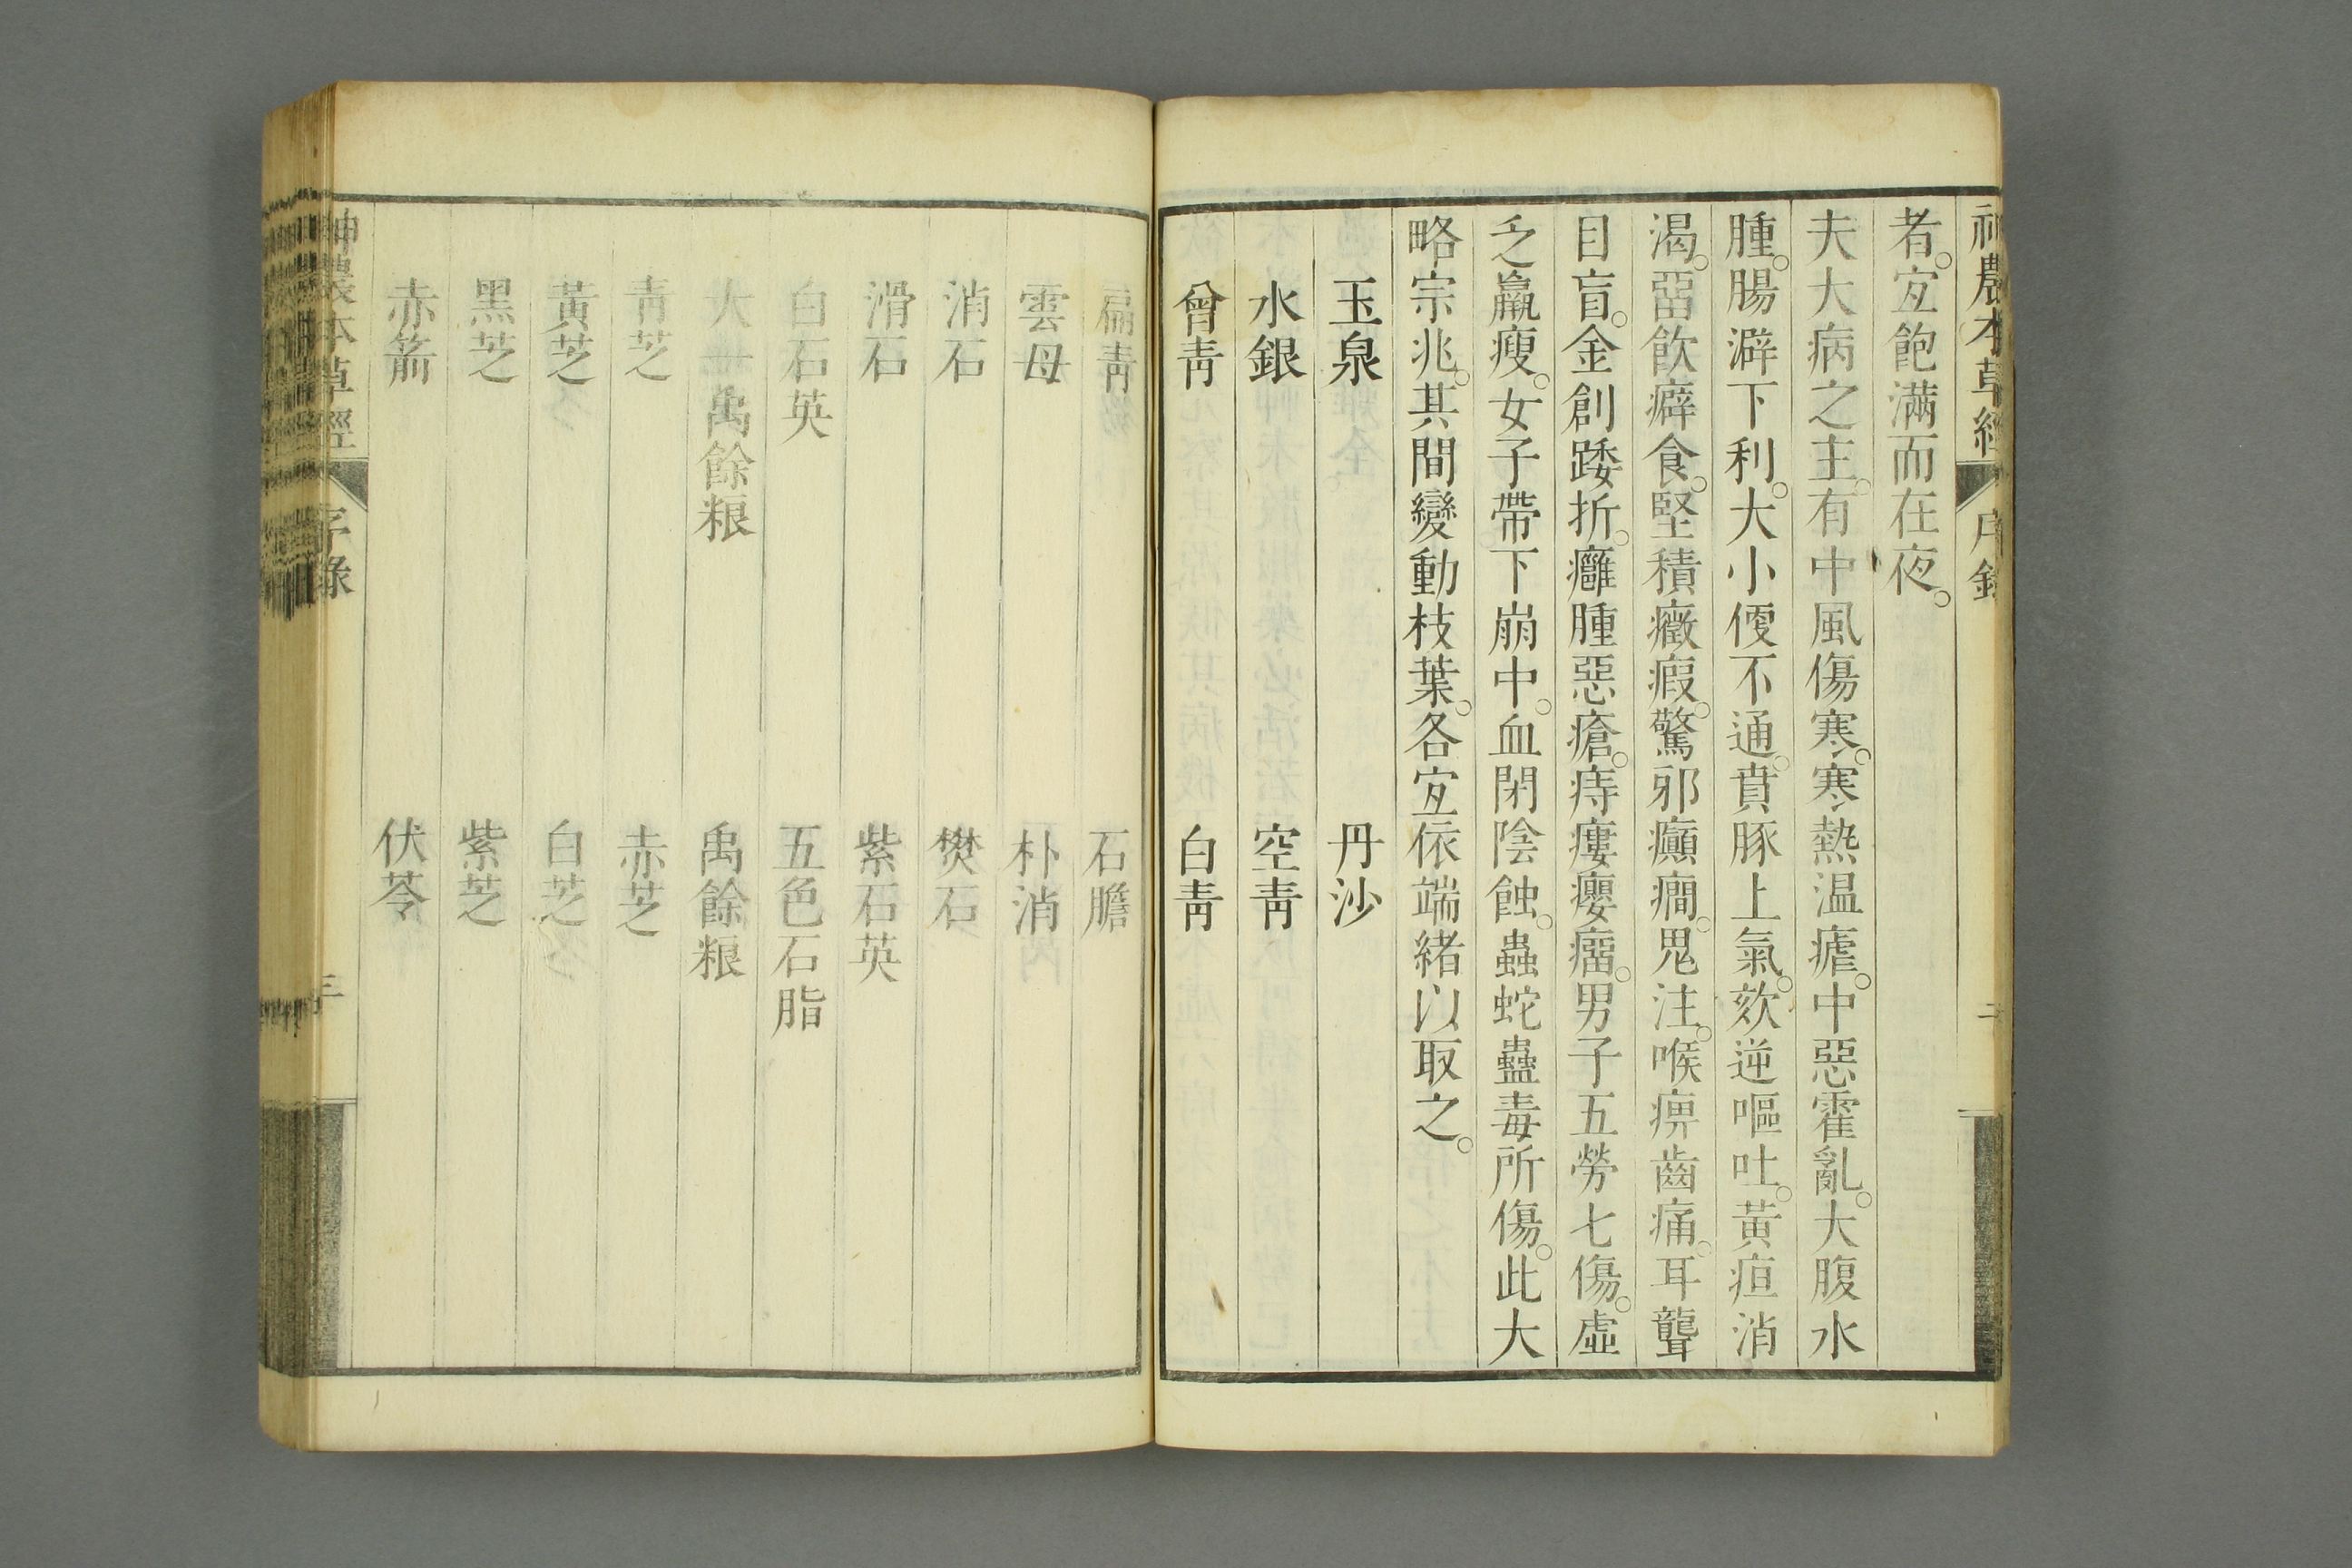 神農本草經 序錄 二
者。宐飽滿而在夜。
夫大病之主。有中風傷寒。寒熱温瘧。中惡霍亂。大腹水
腫。腸澼下利。大小便不通。賁豚上氣。欬逆嘔吐。黃疸消
渴。畱飲癖食。堅積癥瘕。驚邪癲癇。鬼注。喉痹齒痛。耳聾
目盲。金創踒折。癰腫惡瘡。痔瘻癭瘤。男子五勞七傷。虛
乏羸瘦。女子帶下崩中。血閉陰蝕。蟲蛇蠱毒所傷。此大
略宗兆。其間變動枝葉。各宐依端緒以取之。
玉泉 丹沙
水銀 空靑
曾靑 白靑
扁靑 石膽
雲母 朴消
消石 樊石
滑石 紫石英
白石英 五色石脂
大一禹餘粮 禹餘粮
靑芝 赤芝
黃芝 白芝
黑芝 紫芝
赤箭 伏苓
神農本草經 序錄 三